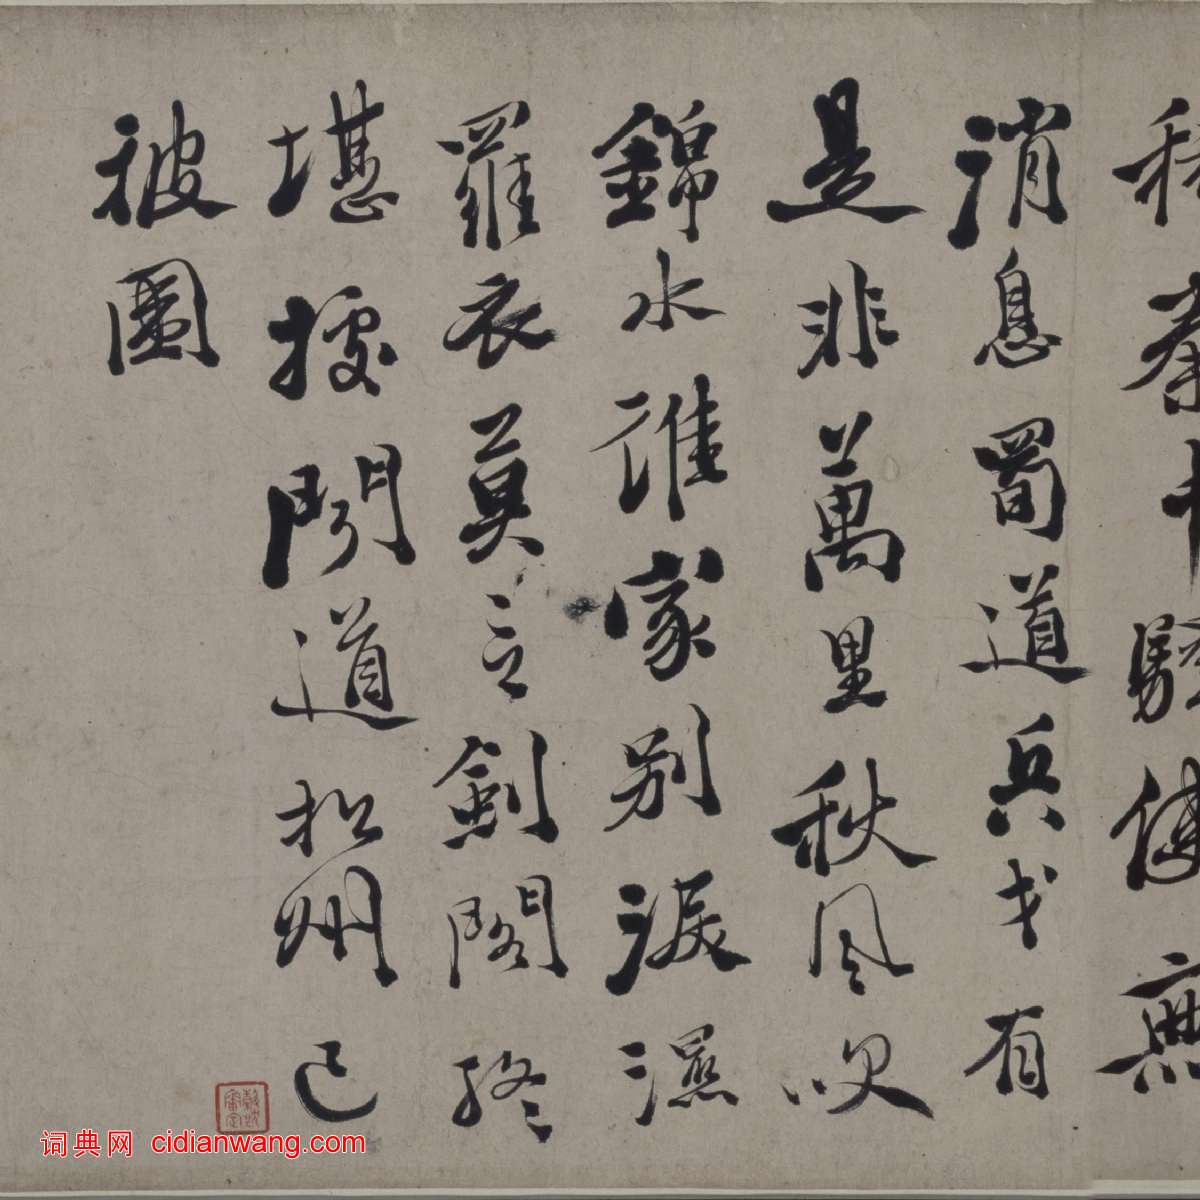 秦中驛使無
消息蜀道兵戈有
是非萬里秋風吹
錦水誰家別淚濕
羅衣莫言劍閣終
堪據聞道松州已
被圍
词典网 cidianwang.com